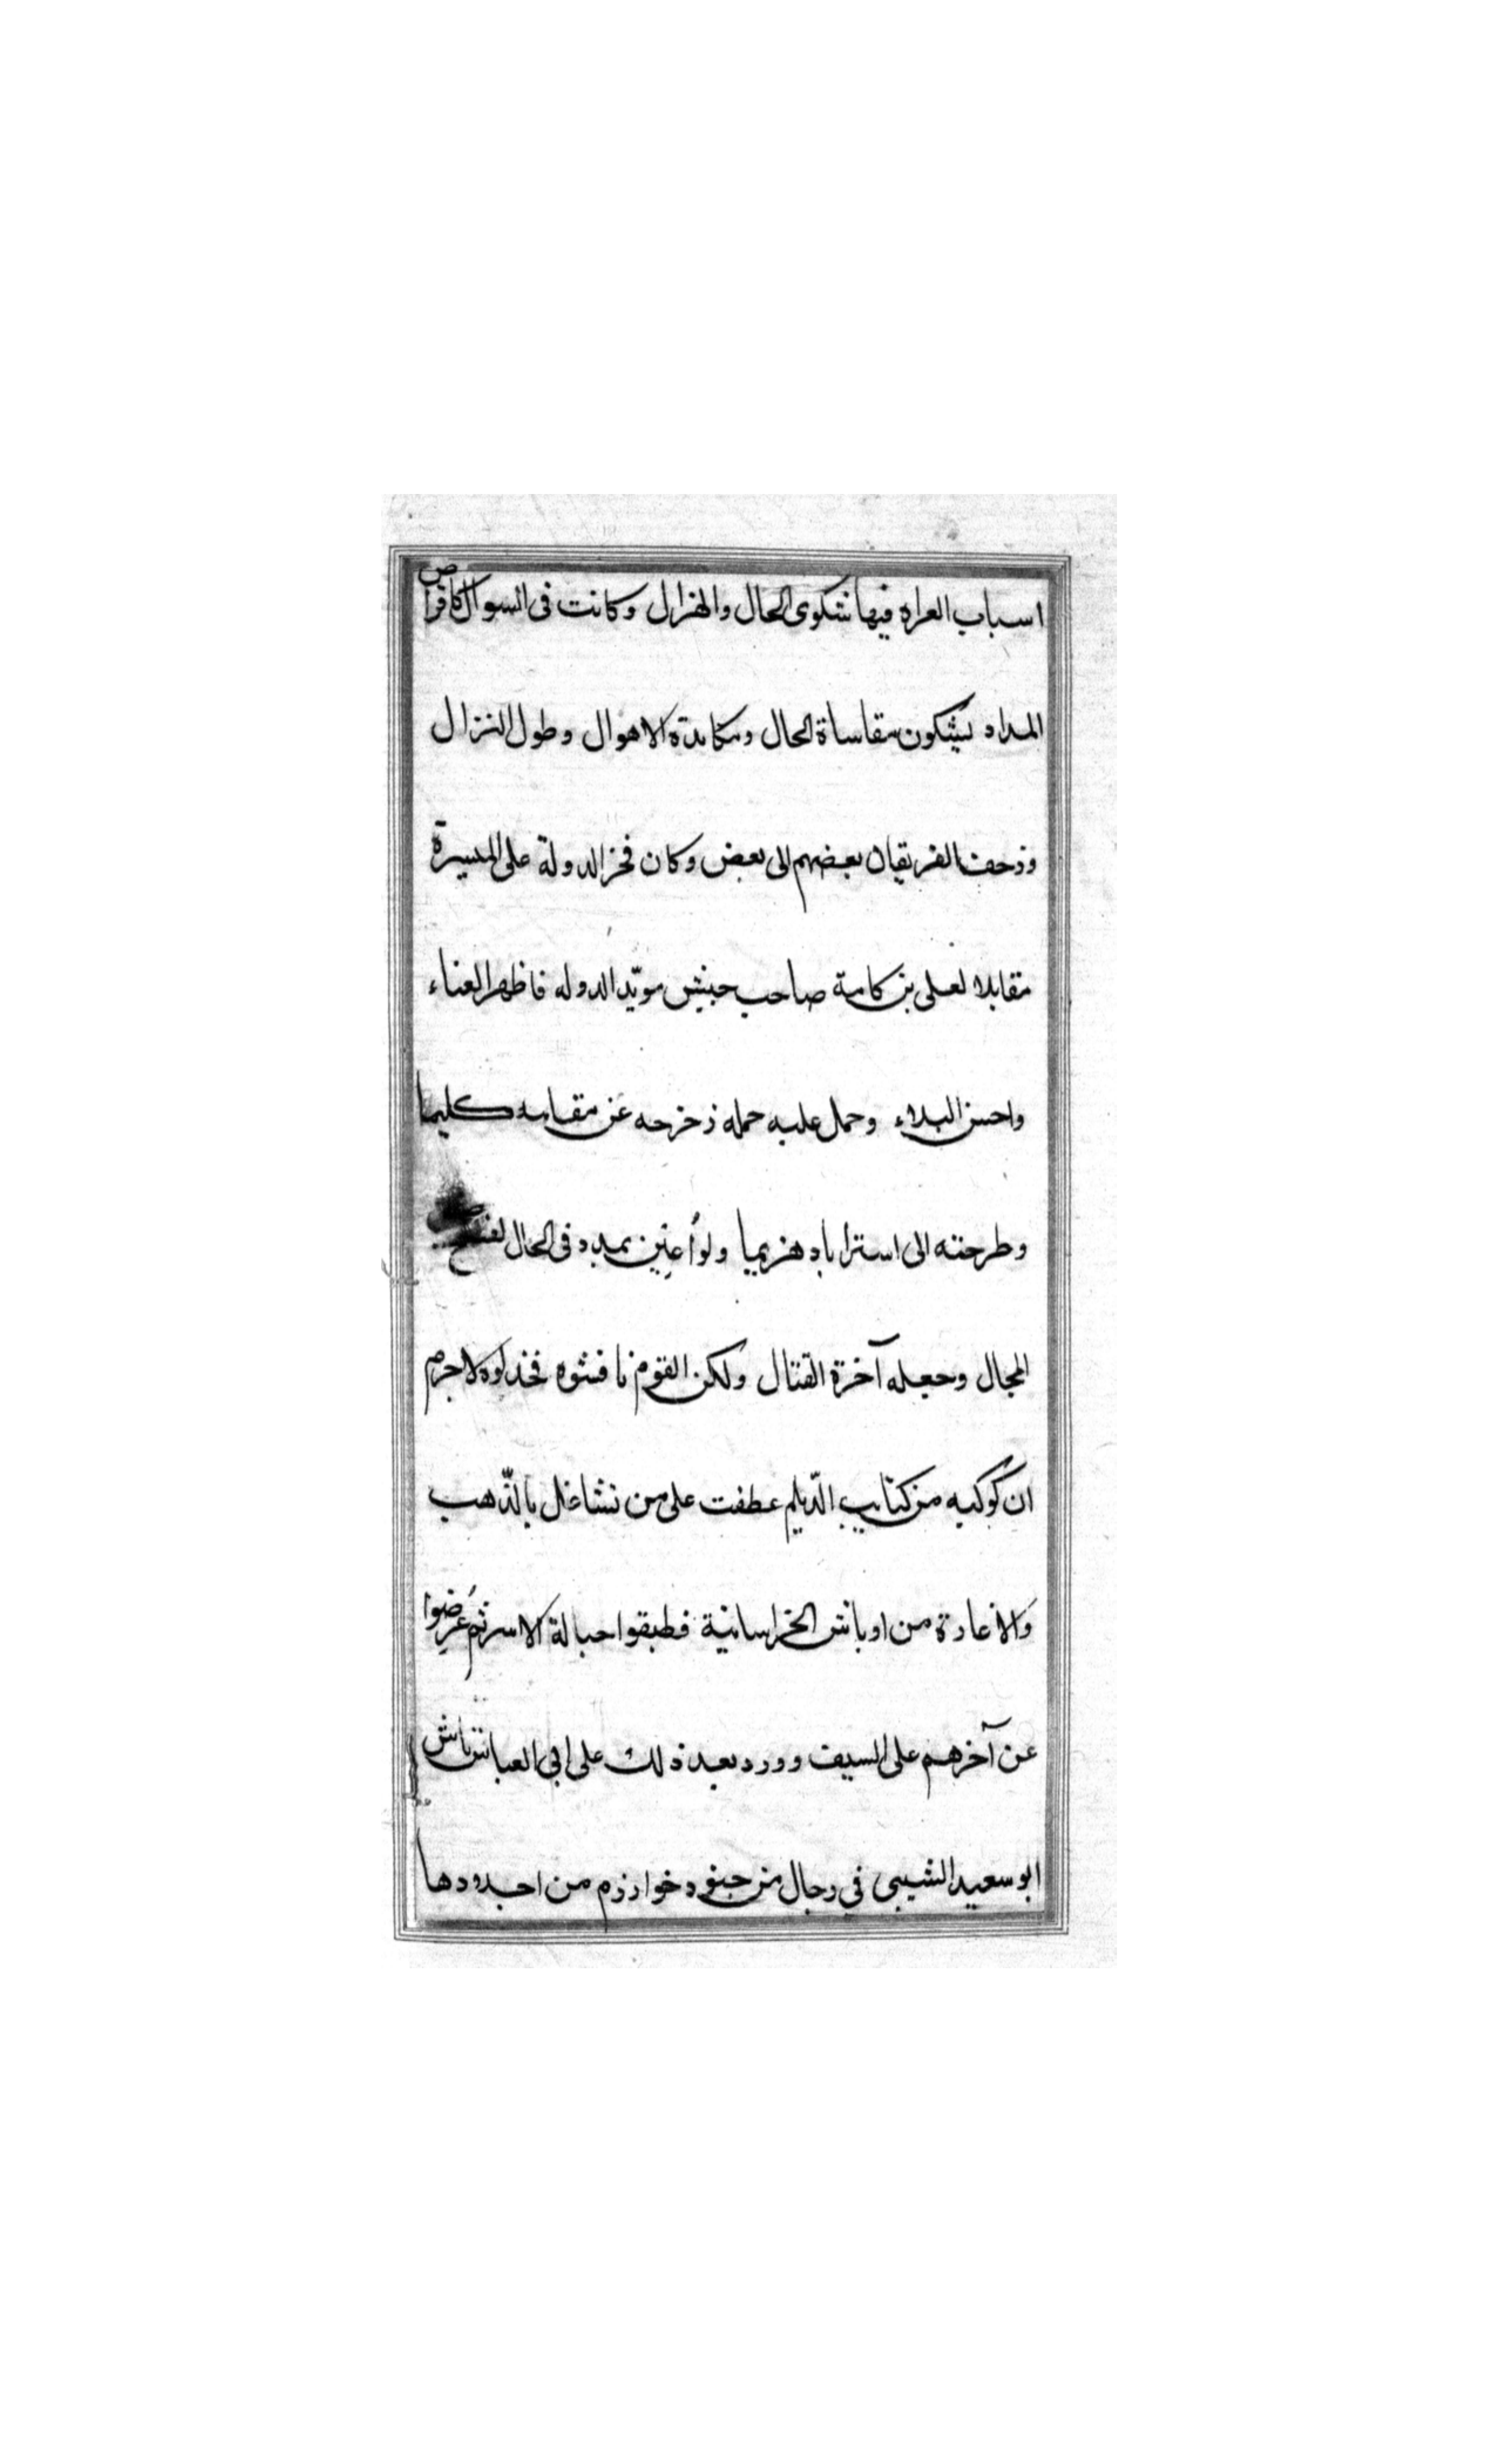 اسباب العراه فيها شكوى الحال والهزال وكانت فى السوال كاقراص
المداد يشكون مقاساة الحال ومكابدة الاهوال وطول النزال
وزحف الفريقان بعضهم الى بعض وكان فخر الدولة على الميسرة
مقابلا لعلى بن كامة صاحب جيش مويّد الدوله فاظهر العناء
واحسن البلاء وحمل عليه حمله زحزحه عن مقامه كليما
وطرحته الى استراباد هزيميا ولو أعين بمدد فى الحال
المجال وجعله آخرة القتال ولكن القوم نافشوه فخذلوه لا جرم
ان كوكبه من كتايب الدّيلم عطفت على من تشاغل بالذّهب
والاغارة من اوباش الخراسانية فطبقوا حبالة الاسر ثم عرضوا
عن آخرهم على السيف وورد بعد ذلك على ابى العباس تاش
ابو سعيد الشيبى في رجال من جنود خوارزم من احدودها